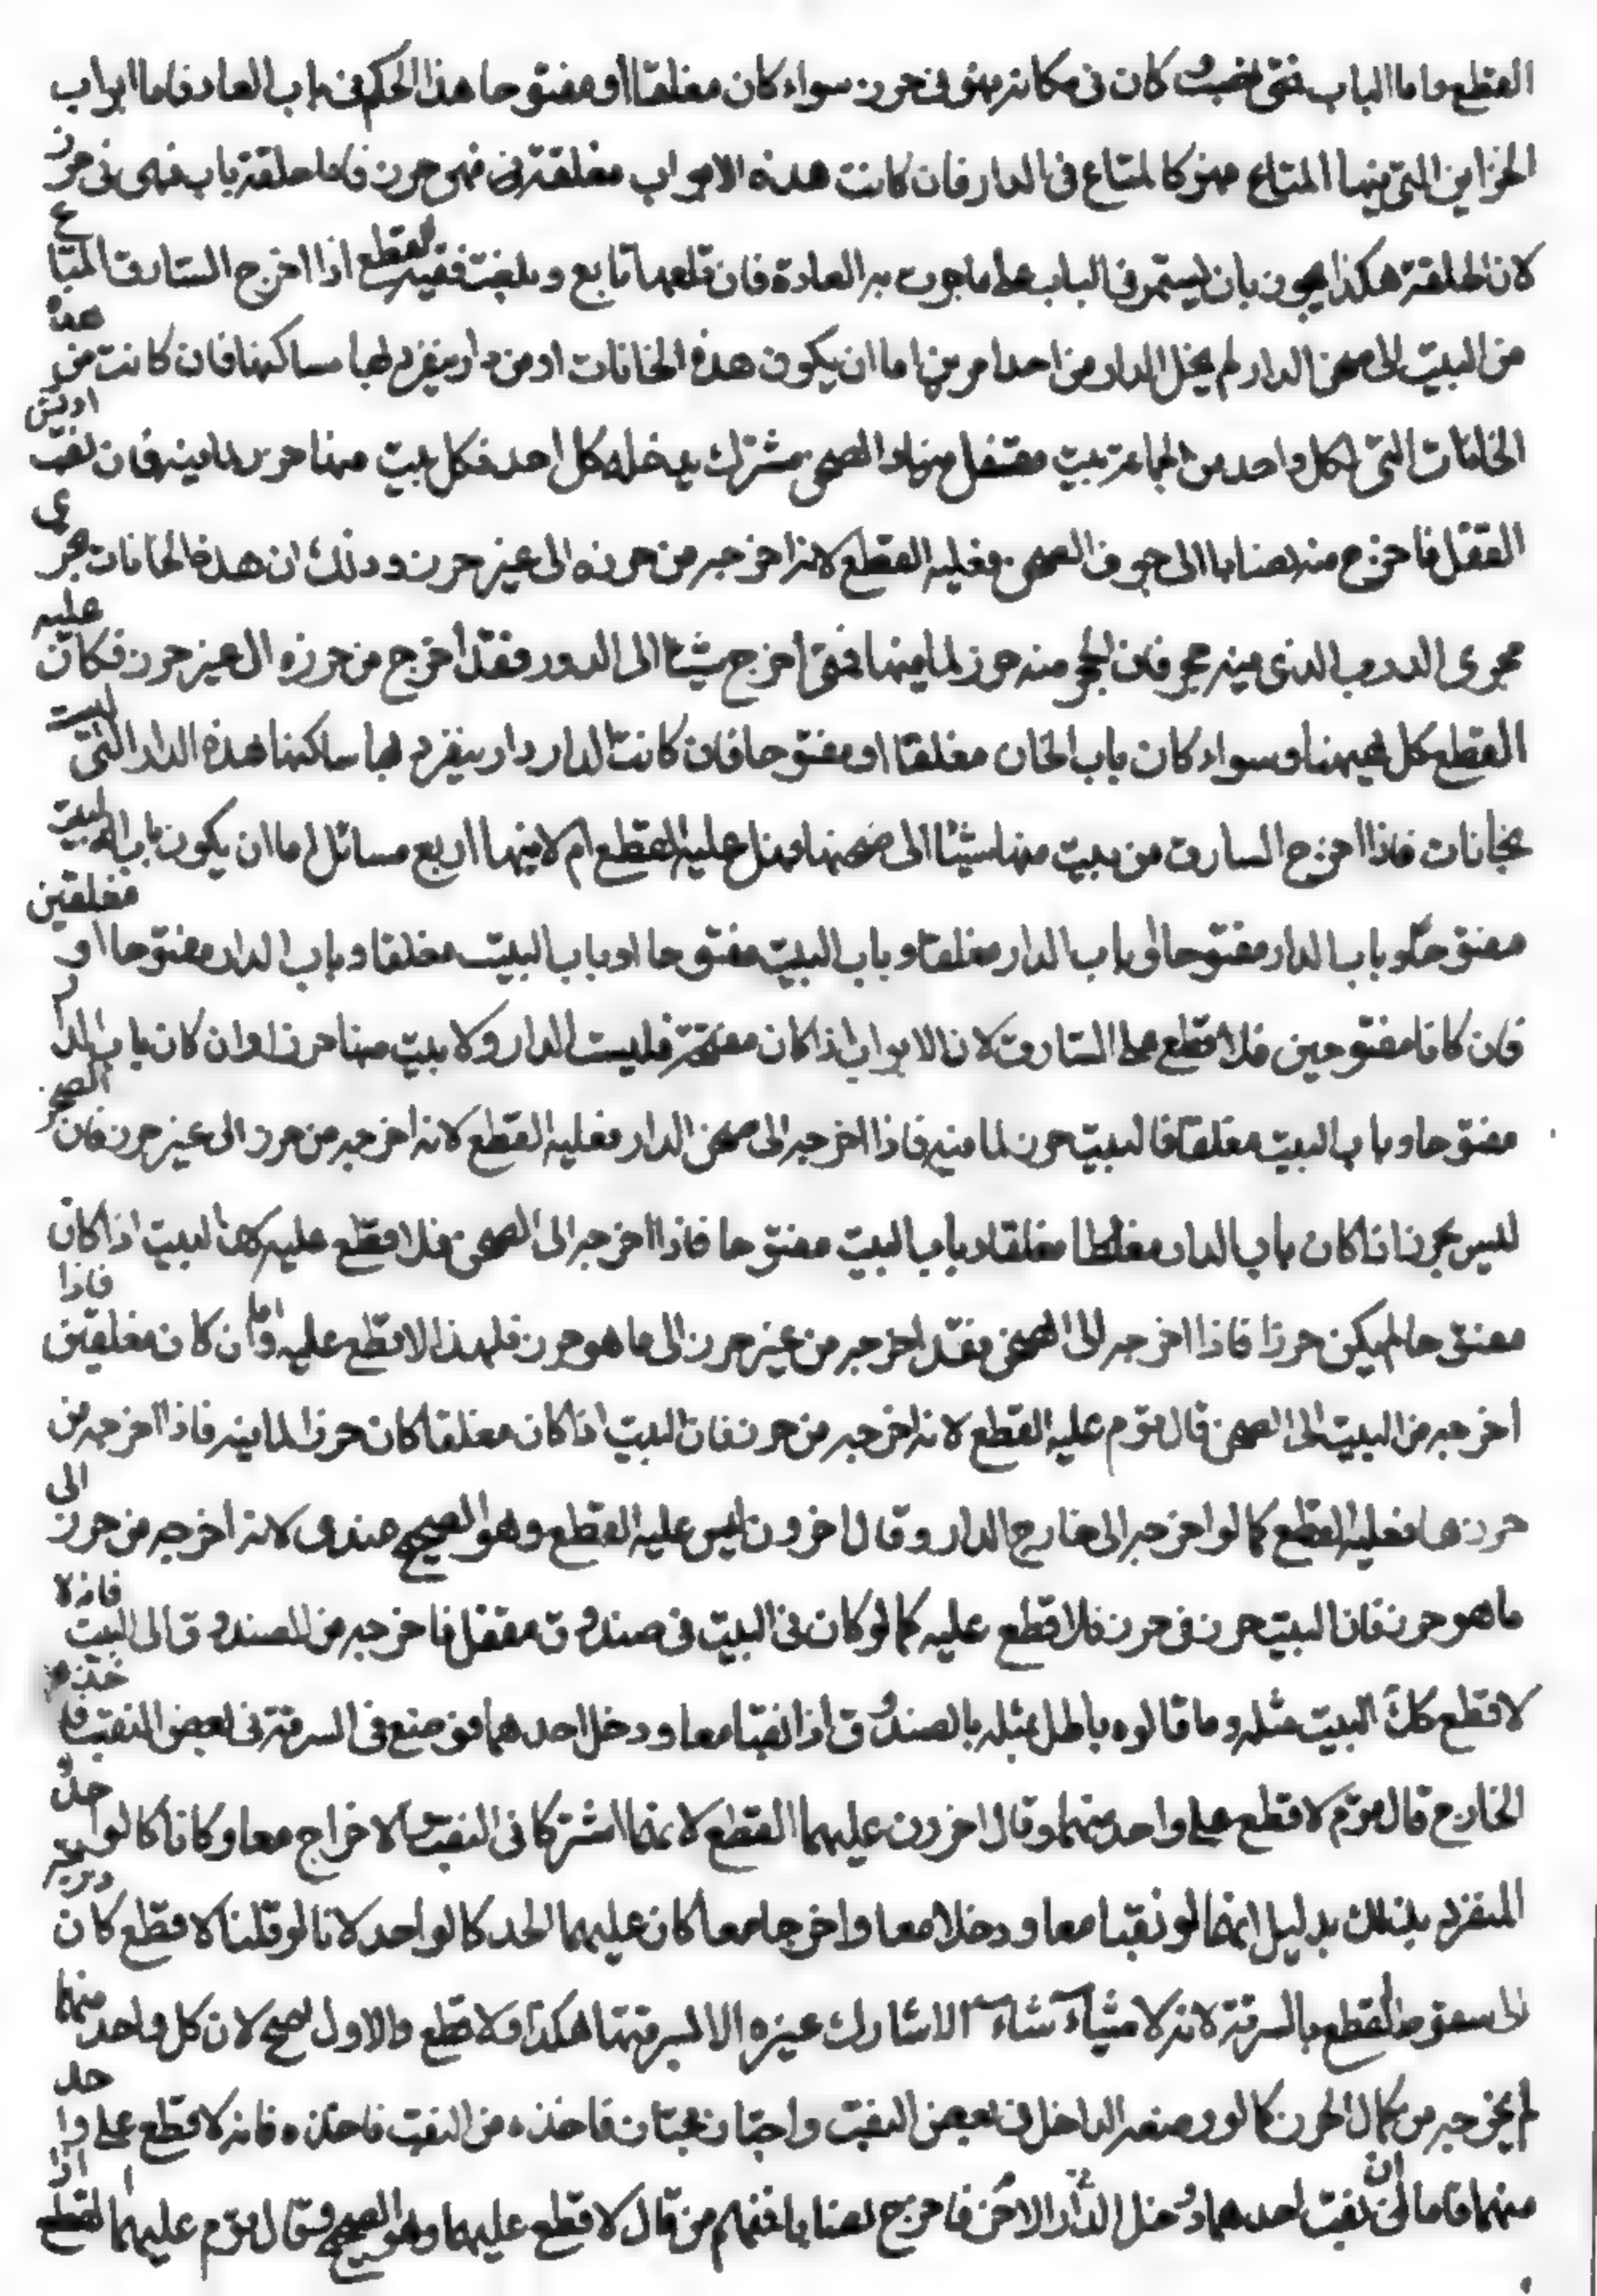 القطع واما الباب فمتى نصب كان في مكانه فهو في حرز سواء كان مغلقا او مفتوحا هذا الحكم في باب الدار فاما ابواب
الخزاين التي فيها المتاع فهو كالمتاع في الدار فان كانت هذه الابواب مغلقة فهو حرز فاما حلقة باب فهى في حرز
لان الحلقة هكذا يحرز بان يستمر في الباب على ما جرت به العادة فان قلعها قالع وبلغت ففيه القطع اذا اخرج السارق المتاع
من البيت الى صحن الدار لم يخل الدار من احد امرين اما ان يكون هذه الخانات او من دار ينفرد لها ساكنها فان كانت من هذه
الخانات التى لكل واحد من الجماعة بيت مقتفل منها والصحن مشترك يدخله كل احد فكل بيت منها حرز لما فيه فان نقب او فتش
القفل فاخرج منه نصابا الى جوف الصحن فعليه القطع لانه اخرجه من حرزه الى غير حرز وذلك ان هذه الخانات تجرى
مجرى الدرب الذى فيه حجر فان الحجر منه حرز لما فيها فمتى اخرج شيئا الى الدور فقد اخرج من حرزه الى غير حرز فكان عليه
القطع كل فيهنا وسواء كان باب الخان مغلقا او مفتوحا فان كانت الدار دار ينفرد بها ساكنها هذه الدار التى ليست
بخانات فاذا اخرج السارق من بيت منها شيئا الى صحنها فهل عليه القطع ام لا فيها اربع مسائل اما ان يكون باب البيت
مفتوحا وباب الدار مفتوحا او باب الدار مغلقا وباب البيت مفتوحا او باب البيت مغلقا وباب الدار مفتوحا او مغلقين
فان كانا مفتوحين فلا قطع على السارق لان الابواب اذا كان مفتحة فليست الدار ولا بيت منها حرزا وان كان باب الدار
مفتوحا وباب البيت مغلقا فالبيت حرز لما فيه فاذا اخرجه الى صحن الدار فعليه القطع لانه اخرجه من حرز الى غير حرز فان الصحن
ليس بحرز فاذا كان باب الدار مغلقا وباب البيت مفتوحا فاذا اخرجه الى الصحن فلا قطع عليه لان البيت اذا كان
مفتوحا لم يكن حرزا فاذا اخرجه الى الصحن فقد اخرجه من غير حرز الى ما هو حرز فلهذا لا قطع عليه واما ان كان مغلقين فاذا
اخرجه من البيت الى الصحن قال قوم عليه القطع لانه اخرجه من حرز فان البيت اذا كان مغلقا كان حرزا لما فيه فاذا اخرجه من
حرزها فعليه القطع كما لو اخرجه الى خارج الدار وقال اخرون ليس عليه القطع وهو الصحيح عندى لانه اخرجه من حرز الى
ما هو حرز فان البيت حرز في حرز فلا قطع عليه كما لو كان في البيت في صندوق مقفل فاخرجه من الصندوق الى البيت فانه لا
لا قطع كك البيت مثله وما قالوه باطل بمثله بالصندوق اذا نقبا معا ودخل احدهما فوضع في السرقة في بعض النقب فاخذها
الخارج قال قوم لا قطع على واحد منهما وقال اخرون عليهما القطع لانهما اشتركا في النقب والاخراج معا وكانا كالواحد
المنفرد بذلك بدليل انهما لو نقبا معا ودخلا معا واخرجا معا كان عليهما الحد كالواحد لانا لو قلنا لا قطع كان ذريعة
الى سقوط القطع بالسرقة لانه لا شاء الا شارك غيره هكذا فلا قطع والاول اصح لان كل واحد منهما
لم يخرجه من كمال الحرز كالو وضعه الداخل في بعض النقب واجتاز مجتاز فاخذه من النقب فانه لا قطع على واحد
منهما فاما ان نقب احدهما ودخل الدار الاخر فاخرج نصابا فمنهم من قال لا قطع عليهما وهو الصحيح وقال قوم عليهما القطع